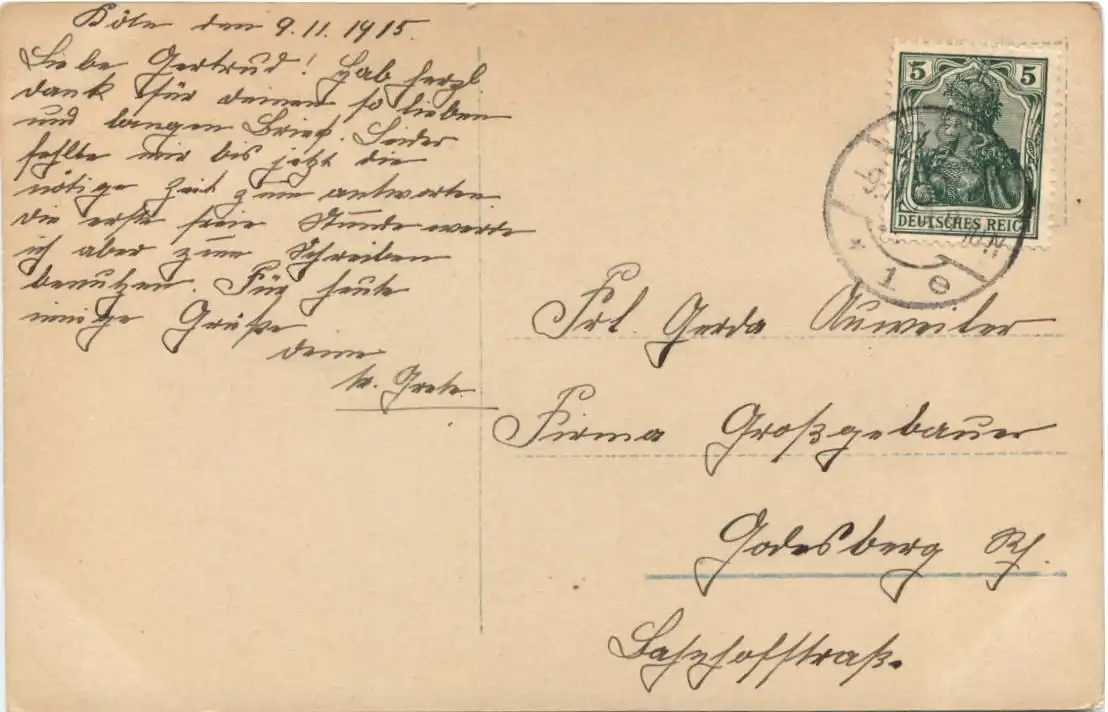 Köln den 9.11.1915.
Liebe Gertrud! Hab herzl.
dank für deinen so lieben
und langen Brief. Leider
fehlte mir bis jetzt die
nötige Zeit zum antworten
die erste freie Stunde werde
ich aber zum Schreiben
benutzen. Für heute
innige Grüße
deine
tr. Grete.
5 5
DEUTSCHES REICH
1
Frl. Gerda Auweiler
Firma Großgebauer
Godesberg Rh.
Bahnhofstraß.